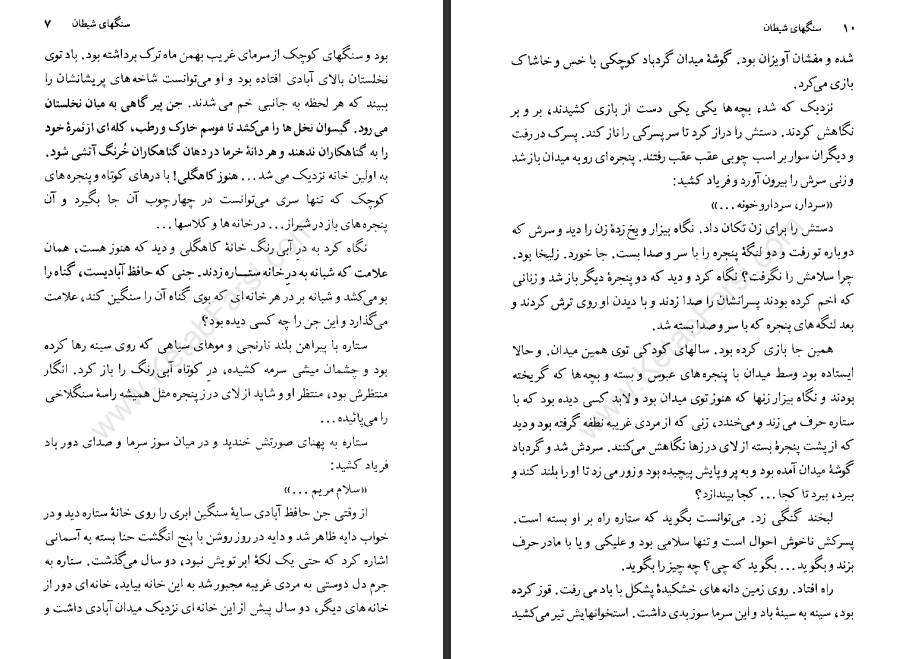 سنگهای شیطان ۷
بود و سنگهای کوچک از سرمای غریب بهمن ماه ترک برداشته بود. باد توی
نخلستان بالای آبادی افتاده بود و او می‌توانست شاخه‌های پریشانشان را
ببیند که هر لحظه به جانبی خم می شدند. جن پیر گاهی به میان نخلستان
می رود. گیسوان نخل ها را می‌کشد تا موسم خارک و رطب، کله ای از نمرهٔ خود
را به گناهکاران ندهند و هر دانهٔ خرما در دهان گناهکاران خُرنگ آتشی شود.
به اولین خانه نزدیک می شد... هنوز کاهگلی! با درهای کوتاه و پنجره های
کوچک که تنها سری می‌توانست در چهارچوب آن جا بگیرد و آن
پنجره‌های باز در شیراز... در خانه ها و کلاسها...
نگاه کرد به درِ آبی رنگ خانهٔ کاهگلی و دید که هنوز هست، همان
علامت که شبانه به درِ خانه ستـــاره زدند. جنی که حافظ آبادیست، گناه را
بو می‌کشد و شبانه بر در هر خانه ای که بوی گناه آن را سنگین کند، علامت
می‌گذارد و این جن را چه کسی دیده بود؟
ستاره با پیراهن بلند نارنجی و موهای سیاهی که روی سینه رها کرده
بود و چشمان میشی سرمه کشیده، درِ کوتاه آبی رنگ را باز کرد. انگار
منتظرش بود، منتظر او و شاید از لای درز پنجره مثل همیشه راسهٔ سنگلاخی
را می‌پائیده...
ستاره به پهنای صورتش خندید و در میان سوز سرما و صدای دور باد
فریاد کشید:
«سلام مریم...»
از وقتی جن حافظ آبادی سایهٔ سنگین ابری را روی خانهٔ ستاره دید و در
خواب دایه ظاهر شد و دایه در روز روشن با پنج انگشت حنا بسته به آسمانی
اشاره کرد که حتی یک لکهٔ ابر تویش نبود، دو سال می‌گذشت. ستاره به
جرم دل دوستی به مردی غریبه مجبور شد به این خانه بیاید، خانه ای دور از
خانه های دیگر، دو سال پیش از این خانه ای نزدیک میدان آبادی داشت و
۱۰ سنگهای شیطان
شده و مفشان آویزان بود. گوشهٔ میدان گردباد کوچکی با خس و خاشاک
بازی می‌کرد.
نزدیک که شد، بچه‌ها یکی یکی دست از بازی کشیدند، بر و بر
نگاهش کردند. دستش را دراز کرد تا سر پسرکی را ناز کند. پسرک در رفت
و دیگران سوار بر اسب چوبی عقب عقب رفتند. پنجره ای رو به میدان باز شد
و زنی سرش را بیرون آورد و فریاد کشید:
«سردار، سردارو خونه...»
دستش را برای زن تکان داد. نگاه بیزار و یخ زدهٔ زن را دید و سرش که
دوباره تو رفت و دو لنگهٔ پنجره را با سر و صدا بست. جا خورد. زلیخا بود.
چرا سلامش را نگرفت؟ نگاه کرد و دید که دو پنجرهٔ دیگر باز شد و زنانی
که اخم کرده بودند پسرانشان را صدا زدند و با دیدن او روی ترش کردند و
بعد لنگه های پنجره که با سر و صدا بسته شد.
همین جا بازی کرده بود. سالهای کودکی توی همین میدان. و حالا
ایستاده بود وسط میدان با پنجره‌های عبوس و بسته و بچه‌ها که گریخته
بودند و نگاه بیزار زنها که هنوز توی میدان بود و لابد کسی دیده بود که با
ستاره حرف می زند و می‌خندد، زنی که از مردی غریبه نطفه گرفته بود و دید
که از پشت پنجرهٔ بسته از لای درزها نگاهش می‌کنند. سردش شد و گردباد
گوشهٔ میدان آمده بود و به پر و پایش پیچیده بود و زور می زد تا او را بلند کند و
ببرد، ببرد تا کجا... کجا بیندازد؟
لبخند گنگی زد. می‌توانست بگوید که ستاره راه بر او بسته است.
پسرکش ناخوش احوال است و تنها سلامی بود و علیکی و یا با مادر حرف
بزند و بگوید... بگوید که چی؟ چه چیز را بگوید.
راه افتاد. روی زمین دانه های خشکیدهٔ پشکل با باد می رفت. قوز کرده
بود، سینه به سینهٔ باد و این سرما سوز بدی داشت. استخوانهایش تیر می‌کشید
www.KetabFarsi.com
www.KetabFarsi.com